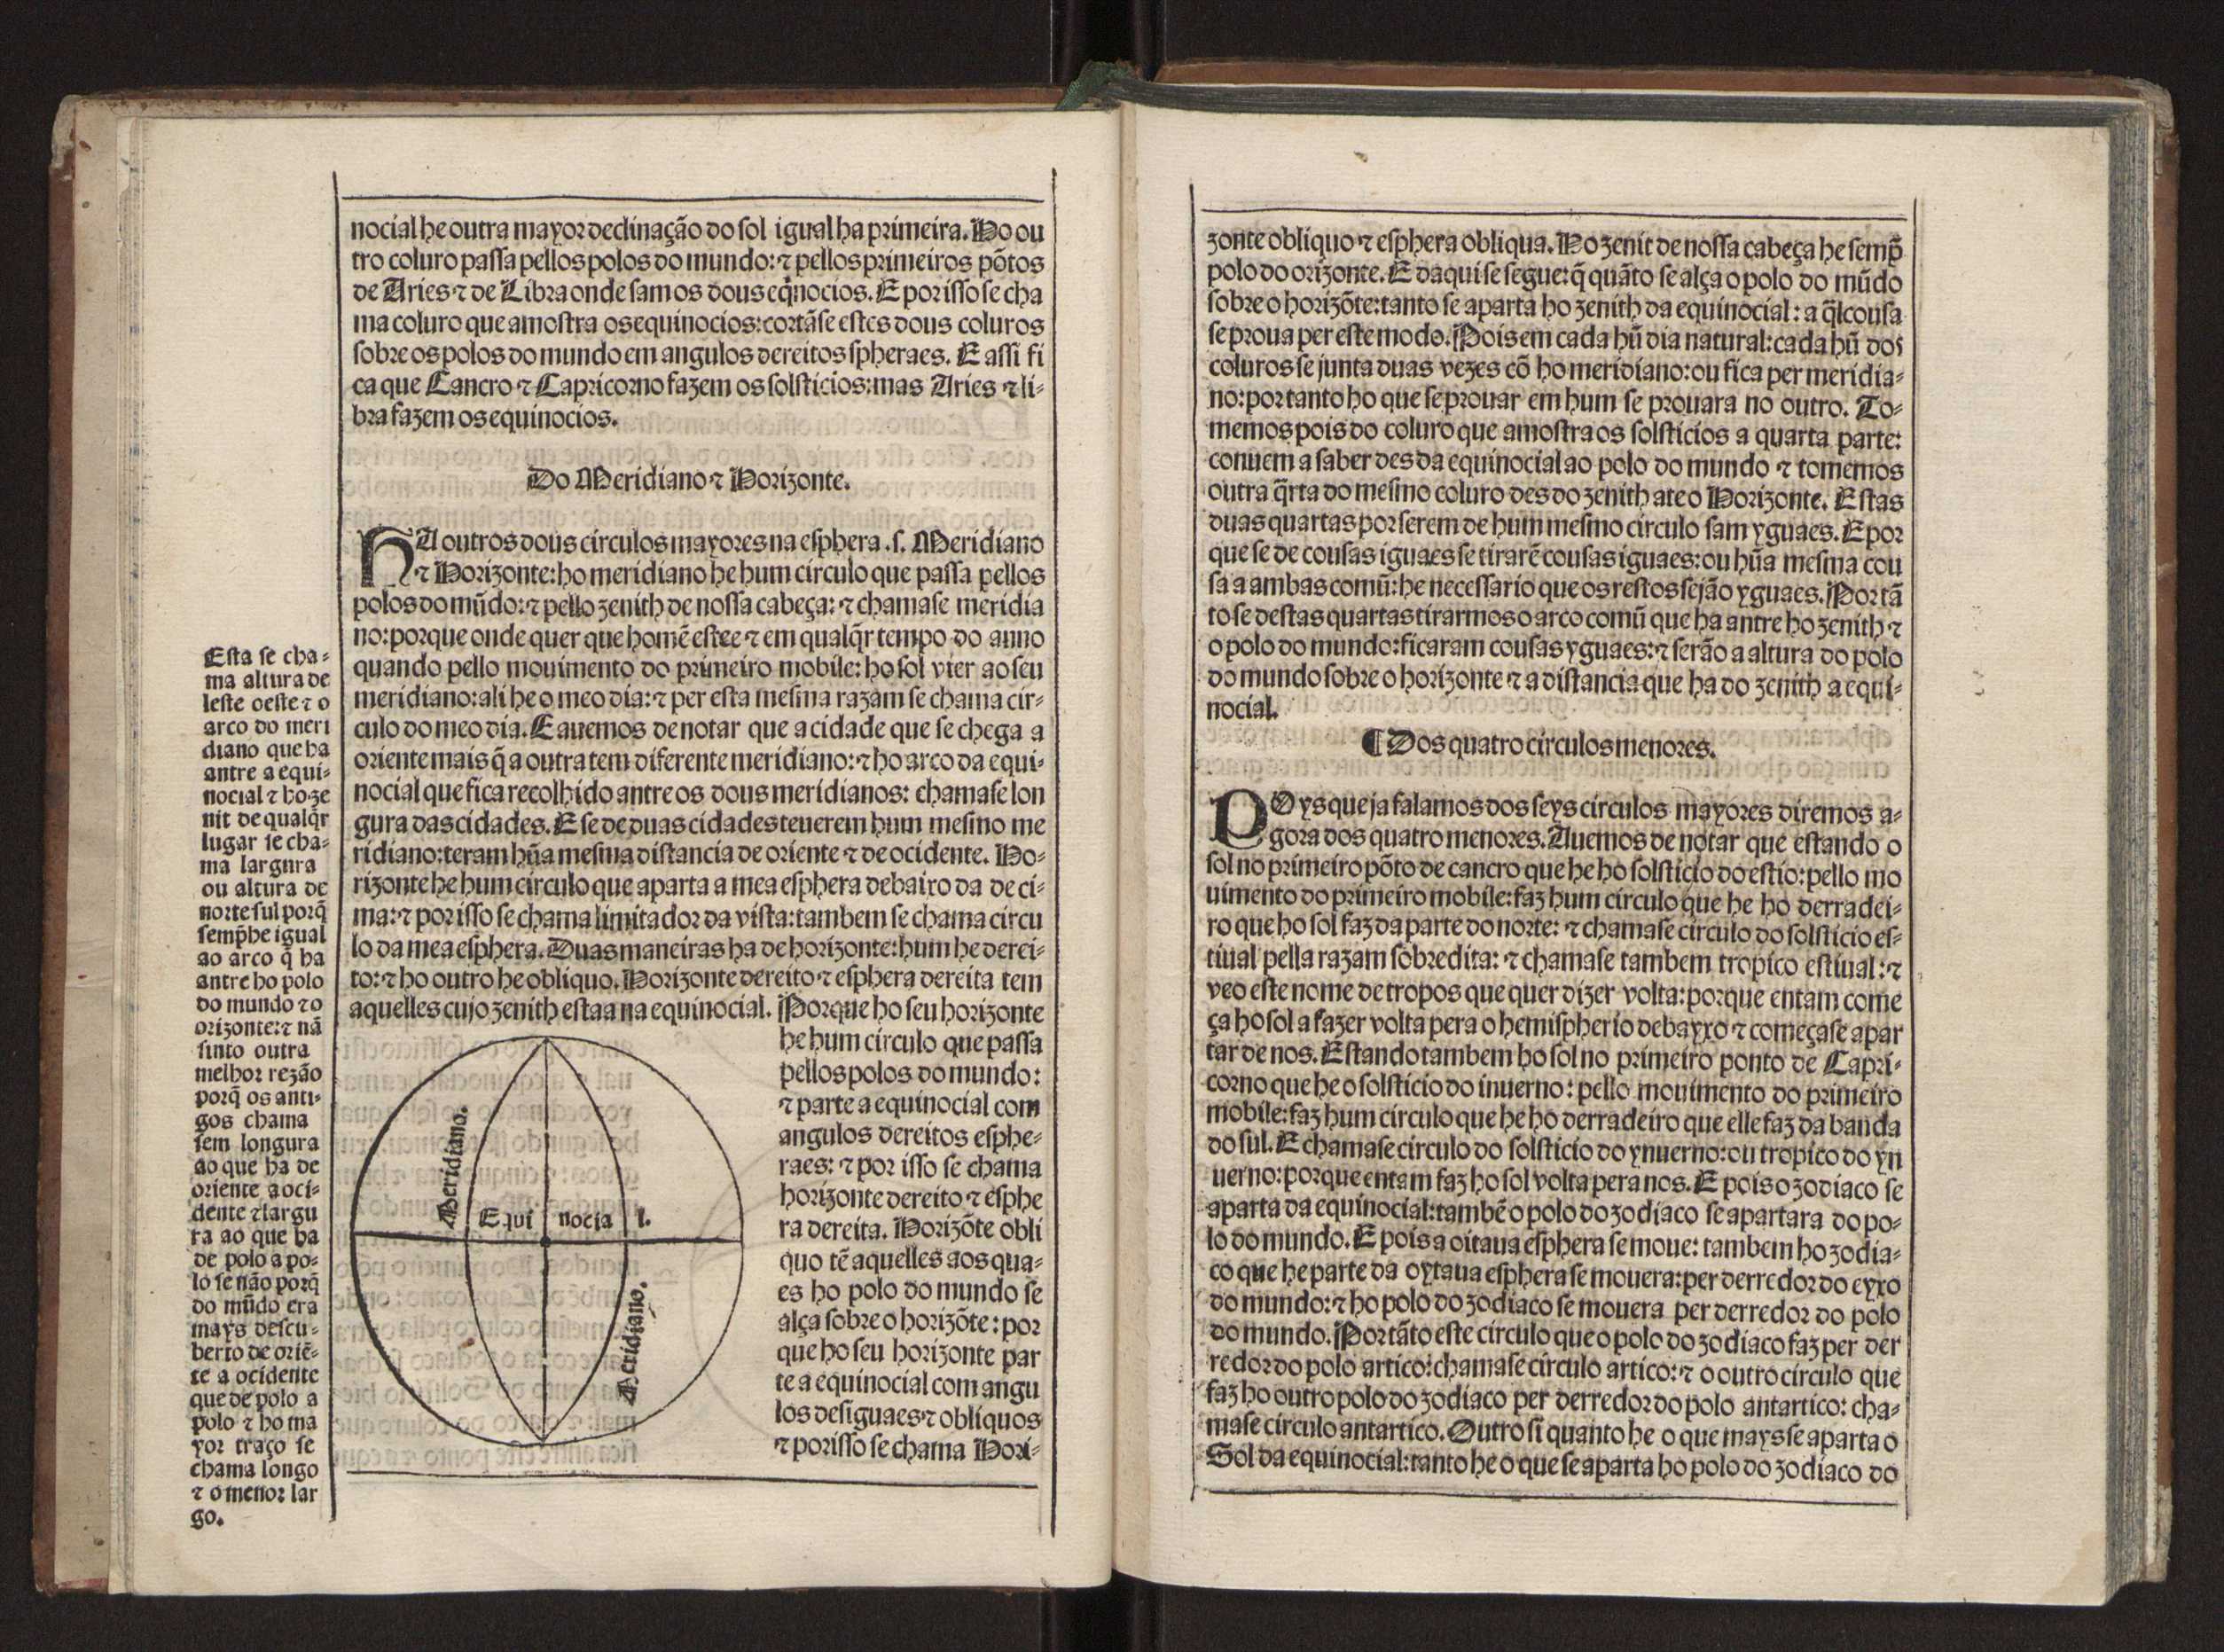 nocial he outra mayor declinação do sol igual ha primeira. Ho ou
tro coluro passa pellos polos do mundo: ⁊ pellos primeiros põtos
de Aries ⁊ de Libra onde sam os dous eq̃nocios. E por isso se cha
ma coluro que amostra os equinocios: cortãse estes dous coluros
sobre os polos do mundo em angulos dereitos spheraes. E assi fi
ca que Cancro ⁊ Capricorno fazem os solsticios: mas Aries ⁊ li-
bra fazem os equinocios.
Do Meridiano ⁊ Horizonte.
HA outros dous circulos mayores na esphera .s. Meridiano
⁊ Horizonte: ho meridiano he hum circulo que passa pellos
polos do mũdo: ⁊ pello zenith de nossa cabeça: ⁊ chamase meridia
no: porque onde quer que homẽ estee ⁊ em qualq̃r tempo do anno
quando pello mouimento do primeiro mobile: ho sol vier ao seu
meridiano: ali he o meo dia: ⁊ per esta mesma razam se chama cir-
culo do meo dia. E auemos de notar que a cidade que se chega a
oriente mais q̃ a outra tem diferente meridiano: ⁊ ho arco da equi-
nocial que fica recolhido antre os dous meridianos: chamase lon
gura das cidades. E se de duas cidades teuerem hum mesmo me
ridiano: teram hũa mesma distancia de oriente ⁊ de ocidente. Ho-
rizonte he hum circulo que aparta a mea esphera debairo da de ci-
ma: ⁊ por isso se chama limitador da vista: tambem se chama circu
lo da mea esphera. Duas maneiras ha de horizonte: hum he derei-
to: ⁊ ho outro he obliquo. Horizonte dereito ⁊ esphera dereita tem
aquelles cujo zenith estaa na equinocial. Porque ho seu horizonte
he hum circulo que passa
pellos polos do mundo:
⁊ parte a equinocial com
angulos dereitos esphe-
raes: ⁊ por isso se chama
horizonte dereito ⁊ esphe
ra dereita. Horizõte obli
quo tẽ aquelles aos qua-
es ho polo do mundo se
alça sobre o horizõte: por
que ho seu horizonte par
te a equinocial com angu
los desiguaes ⁊ obliquos
⁊ por isso se chama Hori-
Meridiano.
Equi nocia l.
Meridiano.
Esta se cha-
ma altura de
leste oeste ⁊ o
arco do meri
diano que ha
antre a equi-
nocial ⁊ ho ze
nit de qualq̃r
lugar se cha-
ma largura
ou altura de
norte sul porq̃
semp̃ he igual
ao arco q̃ ha
antre ho polo
do mundo ⁊ o
orizonte: ⁊ nã
sinto outra
melhor rezão
porq̃ os anti-
gos chama
sem longura
ao que ha de
oriente a oci-
dente ⁊ largu
ra ao que ha
de polo a po-
lo se não porq̃
do mũdo era
mays descu-
berto de oriẽ-
te a ocidente
que de polo a
polo ⁊ ho ma
yor traço se
chama longo
⁊ o menor lar
go.
zonte obliquo ⁊ esphera obliqua. Ho zenit de nossa cabeça he semp̃
polo do orizonte. E daqui se segue: q̃ quãto se alça o polo do mũdo
sobre o horizõte: tanto se aparta ho zenith da equinocial: a q̃l cousa
se proua per este modo. Pois em cada hũ dia natural: cada hũ dos
coluros se junta duas vezes cõ ho meridiano: ou fica per meridia-
no: portanto ho que se prouar em hum se prouara no outro. To-
memos pois do coluro que amostra os solsticios a quarta parte:
conuem a saber des da equinocial ao polo do mundo ⁊ tomemos
outra q̃rta do mesmo coluro des do zenith ate o Horizonte. Estas
duas quartas por serem de hum mesmo circulo sam yguaes. E por
que se de cousas iguaes se tirarẽ cousas iguaes: ou hũa mesma cou
sa a ambas comũ: he necessario que os restos sejão yguaes. Portã
to se destas quartas tirarmos o arco comũ que ha antre ho zenith ⁊
o polo do mundo: ficaram cousas yguaes: ⁊ serão a altura do polo
do mundo sobre o horizonte ⁊ a distancia que ha do zenith a equi-
nocial.
¶ Dos quatro circulos menores.
POys que ja falamos dos seys circulos mayores diremos a-
gora dos quatro menores. Auemos de notar que estando o
sol no primeiro põto de cancro que he ho solsticio do estio: pello mo
uimento do primeiro mobile: faz hum circulo que he ho derradei-
ro que ho sol faz da parte do norte: ⁊ chamase circulo do solsticio es-
tiual pella razam sobredita: ⁊ chamase tambem tropico estiual: ⁊
veo este nome de tropos que quer dizer volta: porque entam come
ça ho sol a fazer volta pera o hemispherio debayxo ⁊ começase apar
tar de nos. Estando tambem ho sol no primeiro ponto de Capri-
corno que he o solsticio do inuerno: pello mouimento do primeiro
mobile: faz hum circulo que he ho derradeiro que elle faz da banda
do sul. E chamase circulo do solsticio do ynuerno: ou tropico do yn
uerno: porque entam faz ho sol volta pera nos. E pois o zodiaco se
aparta da equinocial: tambẽ o polo do zodiaco se apartara do po-
lo do mundo. E pois a oitaua esphera se moue: tambem ho zodia-
co que he parte da oytaua esphera se mouera: per derredor do eyxo
do mundo: ⁊ ho polo do zodiaco se mouera per derredor do polo
do mundo. Portãto este circulo que o polo do zodiaco faz per der
redor do polo artico: chamase circulo artico: ⁊ o outro circulo que
faz ho outro polo do zodiaco per derredor do polo antartico: cha-
mase circulo antartico. Outro si quanto he o que mays se aparta o
Sol da equinocial: tanto he o que se aparta ho polo do zodiaco do